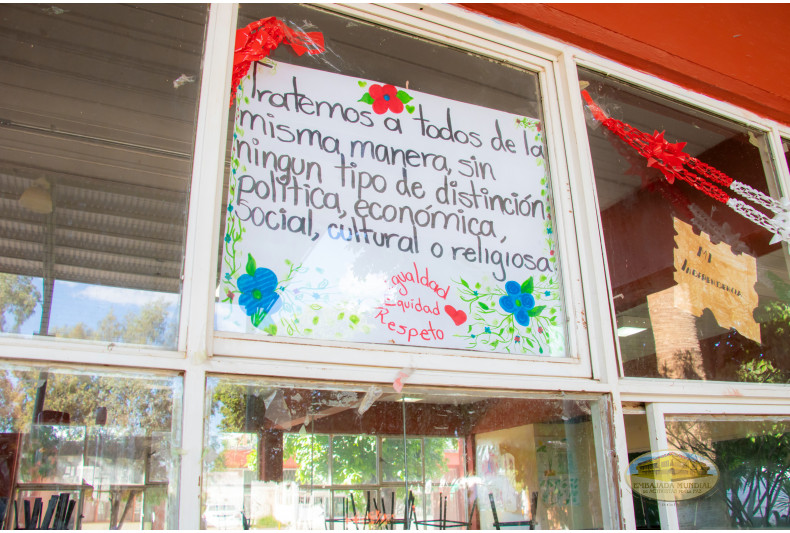 Tratemos a todos de la
misma manera, sin
ningun tipo de distinción
política, económica,
Social, cultural o religiosa.
Igualdad
Equidad
Respeto
MI
INDEPENDENCIA
EMBAJADA MUNDIAL